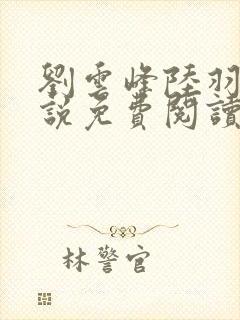 劉雲峰陸羽
說免費閱讀
林警官